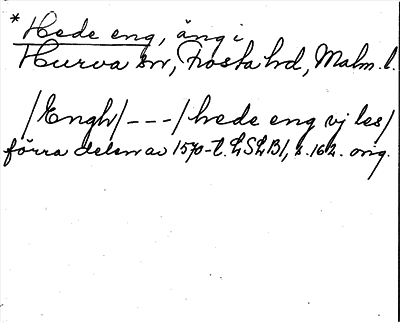 * Hede eng, äng i
Hurva sn, Frosta hd, Malm. l.
/Engh/ - - - / hede eng vj les/
förra delen av 1570-t. LSLB1, s. 162. orig.